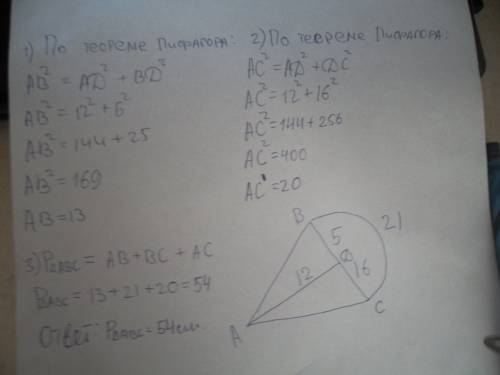 1) По теореме Пифагора:
AB² = AD² + BD²
AB² = 12² + 5²
AB² = 144 + 25
AB² = 169
AB = 13
2) По теореме Пифагора:
AC² = AD² + DC²
AC² = 12² + 16²
AC² = 144 + 256
AC² = 400
AC = 20
3) P△ABC = AB + BC + AC
P△ABC = 13 + 21 + 20 = 54
Ответ: P△ABC = 54 см.
B
5
21
12
D
16
A
C